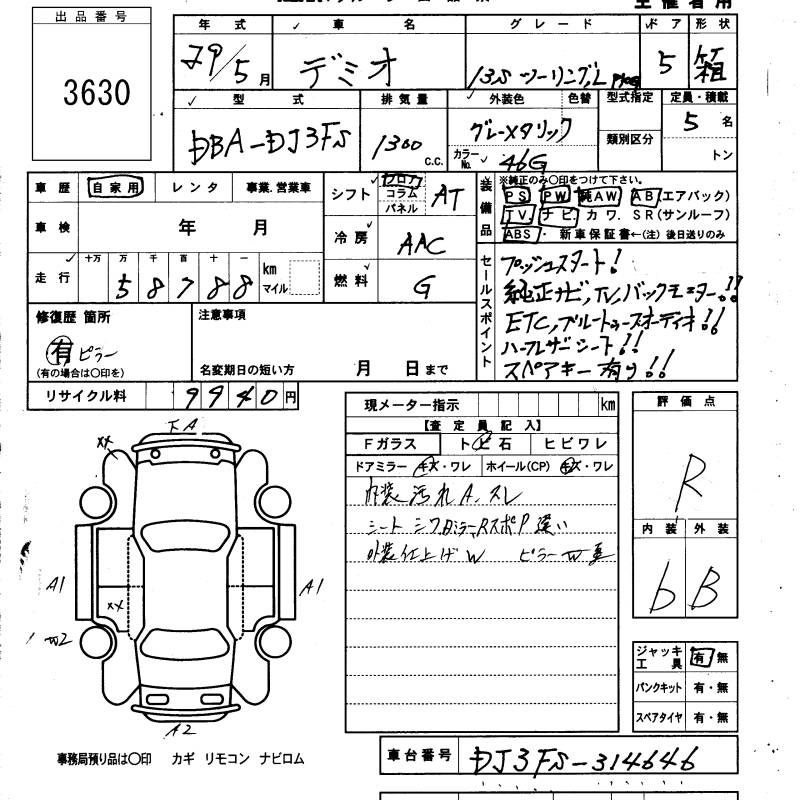 出品番号
3630
年式 車名 グレード ドア 形状
29/5月 デミオ 13Sツーリング L Pkg 5 箱
型式 排気量 外装色 色替 型式指定 定員・積載
DBA-DJ3FS 1300 c.c. グレーメタリック 類別区分 5名
カラーNo. 46G トン
車歴 自家用 レンタ 事業.営業車
車検 年 月
走行 十万 万 千 百 十 一 km マイル
58788
シフト フロア コラム パネル AT
冷房 AAC
燃料 G
装備品 ※純正のみ〇印をつけて下さい。
PS PW 純AW AB(エアバック)
TV ナビ カワ. SR(サンルーフ)
ABS・新車保証書←(注)後日送りのみ
セールスポイント
プッシュスタート!
純正ナビ,TV,バックモニター!!
ETC,ブルートゥースオーディオ!!
ハーフレザーシート!!
スペアキー有り!!
修復歴 箇所
有 ピラー
(有の場合は〇印を)
注意事項
名変期日の短い方 月 日まで
リサイクル料 9940円
現メーター指示 km
【査定員記入】
Fガラス ト ビ 石 ヒビワレ
ドアミラー キズ・ワレ ホイール(CP) キズ・ワレ
内装汚れA.スレ
シート シワ
外装仕上げW ピラーW
評価点
R
内装 外装
b B
ジャッキ工具 有・無
パンクキット 有・無
スペアタイヤ 有・無
XX
A1
XX
A1
W2
A2
事務局預り品は〇印 カギ リモコン ナビロム
車台番号 DJ3FS-314646